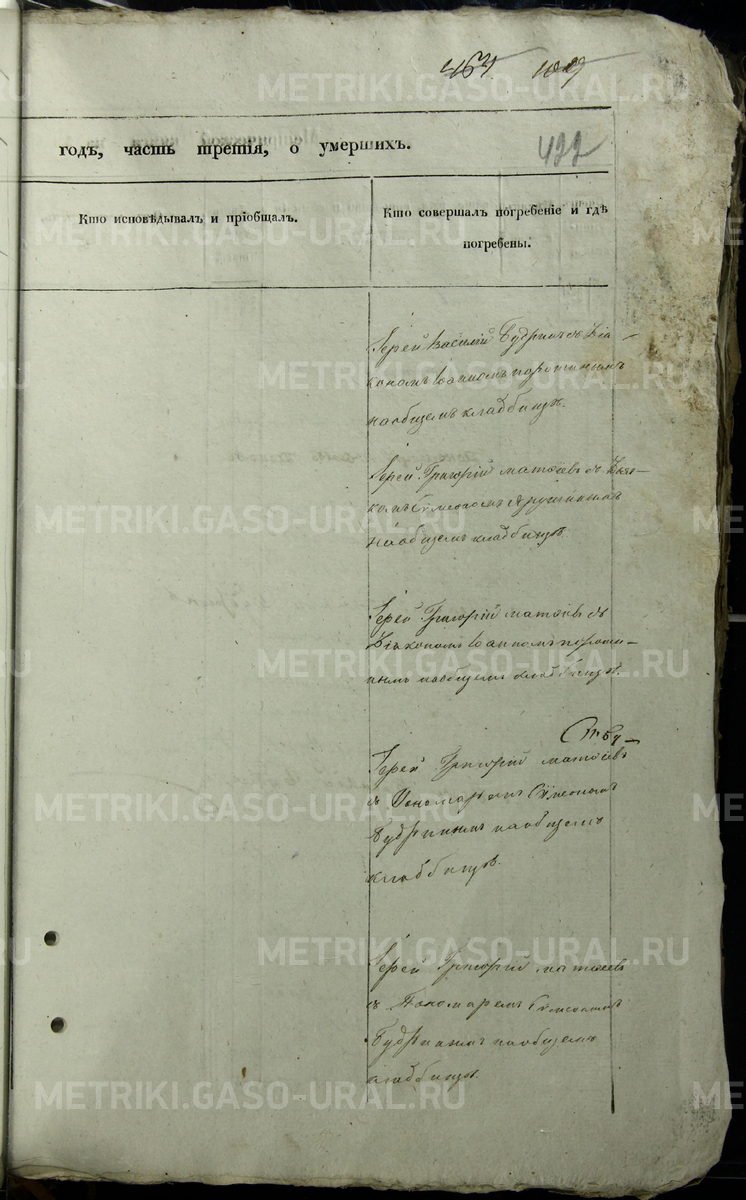 463 109
422
годъ, часть третія, о умершихъ.
Кто исповѣдывалъ и пріобщалъ.
Кто совершалъ погребеніе и гдѣ
погребены.
Іерей Василій Будринъ съ Діа-
кономъ Іоанномъ
на общемъ кладбищѣ.
Іерей Григорій Матѳіевъ съ Дья-
комъ Сумеономъ
на общемъ кладбищѣ
Іерей Григорій Матѳіевъ съ
Діакономъ Іоанномъ
на общемъ кладбищѣ.
Іерей Григорій Матѳіевъ
съ Пономаремъ Сумеономъ
Будринымъ на общемъ
кладбищѣ.
Іерей Григорій Матѳіевъ
съ Пономаремъ Сумеономъ
Будринымъ на общемъ
кладбищѣ.
METRIKI.GASO-URAL.RU